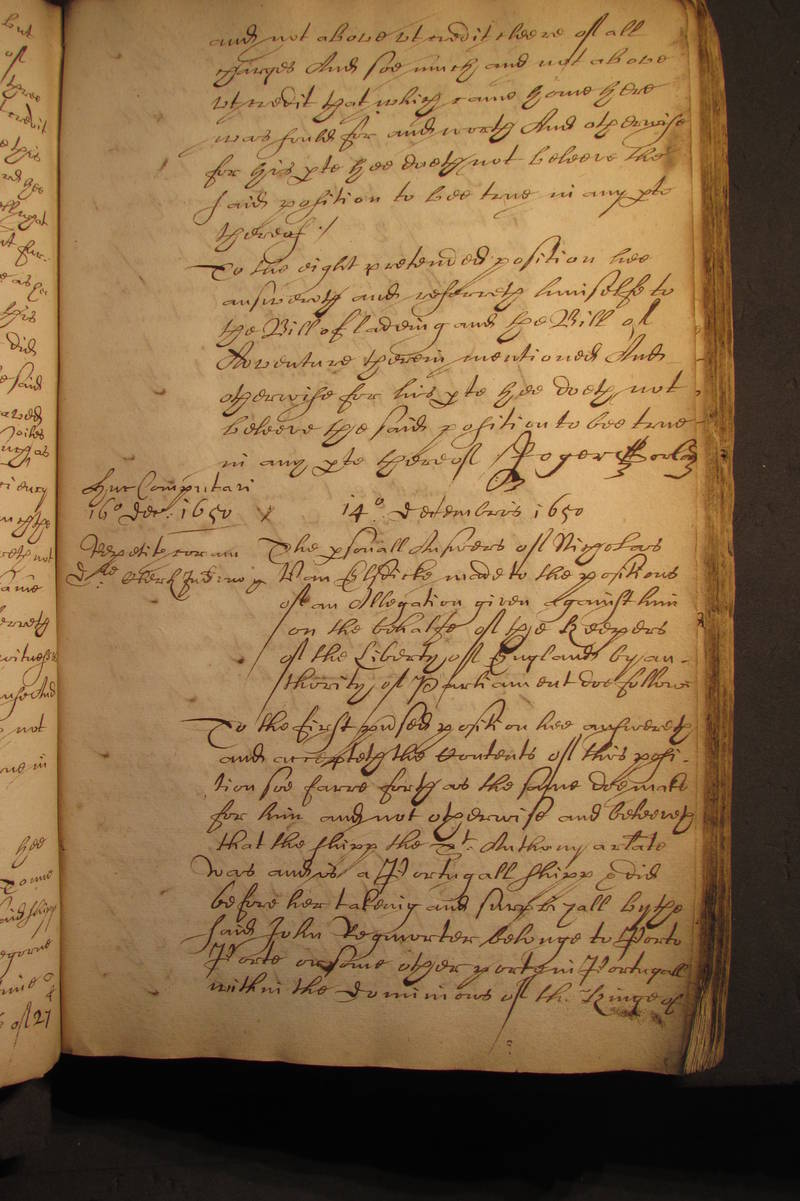 and not above vt credit cleere of all
charges And soe much and not above
vt credit that which came home here
was sould for and worth And otherwise
for his pte hee doeth not beleeve the
said position to bee true in any pte
thereof ./
To the eight pretended position hee
answereth and referreth himselfe to
the Bill of ladeing and the Bill of
Adventure therein mentioned And
otherwise for his pte hee doeth not
beleeve the said position to bee true
in any pte thereof Roger
huc Computari
16º Dec: 1650
14º. Decembris 1650
Repetit coram
Clerk
The psonall Answers of Nicholas
Van Elsdicke made to the positions
of an Allegation given against him
on the behalfe of the Keepers
of the Liberty of England by au-
thority of Parliament doe follow
To the first position hee answereth
and accepteth the Contents of this posi-
tion soe farre forth as the same doe make
for him and not otherwise and beleeveth
that the shipp the St. Anthony arlate
was and is a Portugall shipp & did
before her takeing and surprizall by the
said John Regmorter belonge to Porto
Porte or some other porte in Portugall
within the Dominions of the Kinge of
but
of
three
credit
hee
did
said
as
not
witness
And
not
in
hee
of 27